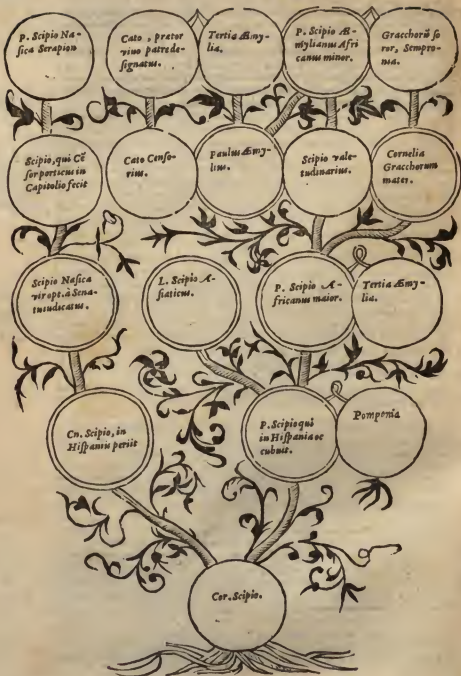 P. Scipio Na-
sica Serapion
Cato, prætor
vivo patre de-
signatus.
Tertia Æmy-
lia.
P. Scipio Æ-
mylianus Afri
canus minor.
Gracchorũ so
ror, Sempro-
nia.
Scipio, qui Cẽ
sor porticus in
Capitolio fecit
Cato Censo-
rius.
Paulus Æmy-
lius.
Scipio vale-
tudinarius.
Cornelia
Gracchorum
mater.
Scipio Nasica
vir opt. à Sena-
tu iudicatus.
L. Scipio A-
siaticus.
P. Scipio A-
fricanus maior.
Tertia Æmy-
lia.
Cn. Scipio, in
Hispaniis periit
P. Scipio qui
in Hispania oc
cubuit.
Pomponia
Cor. Scipio.